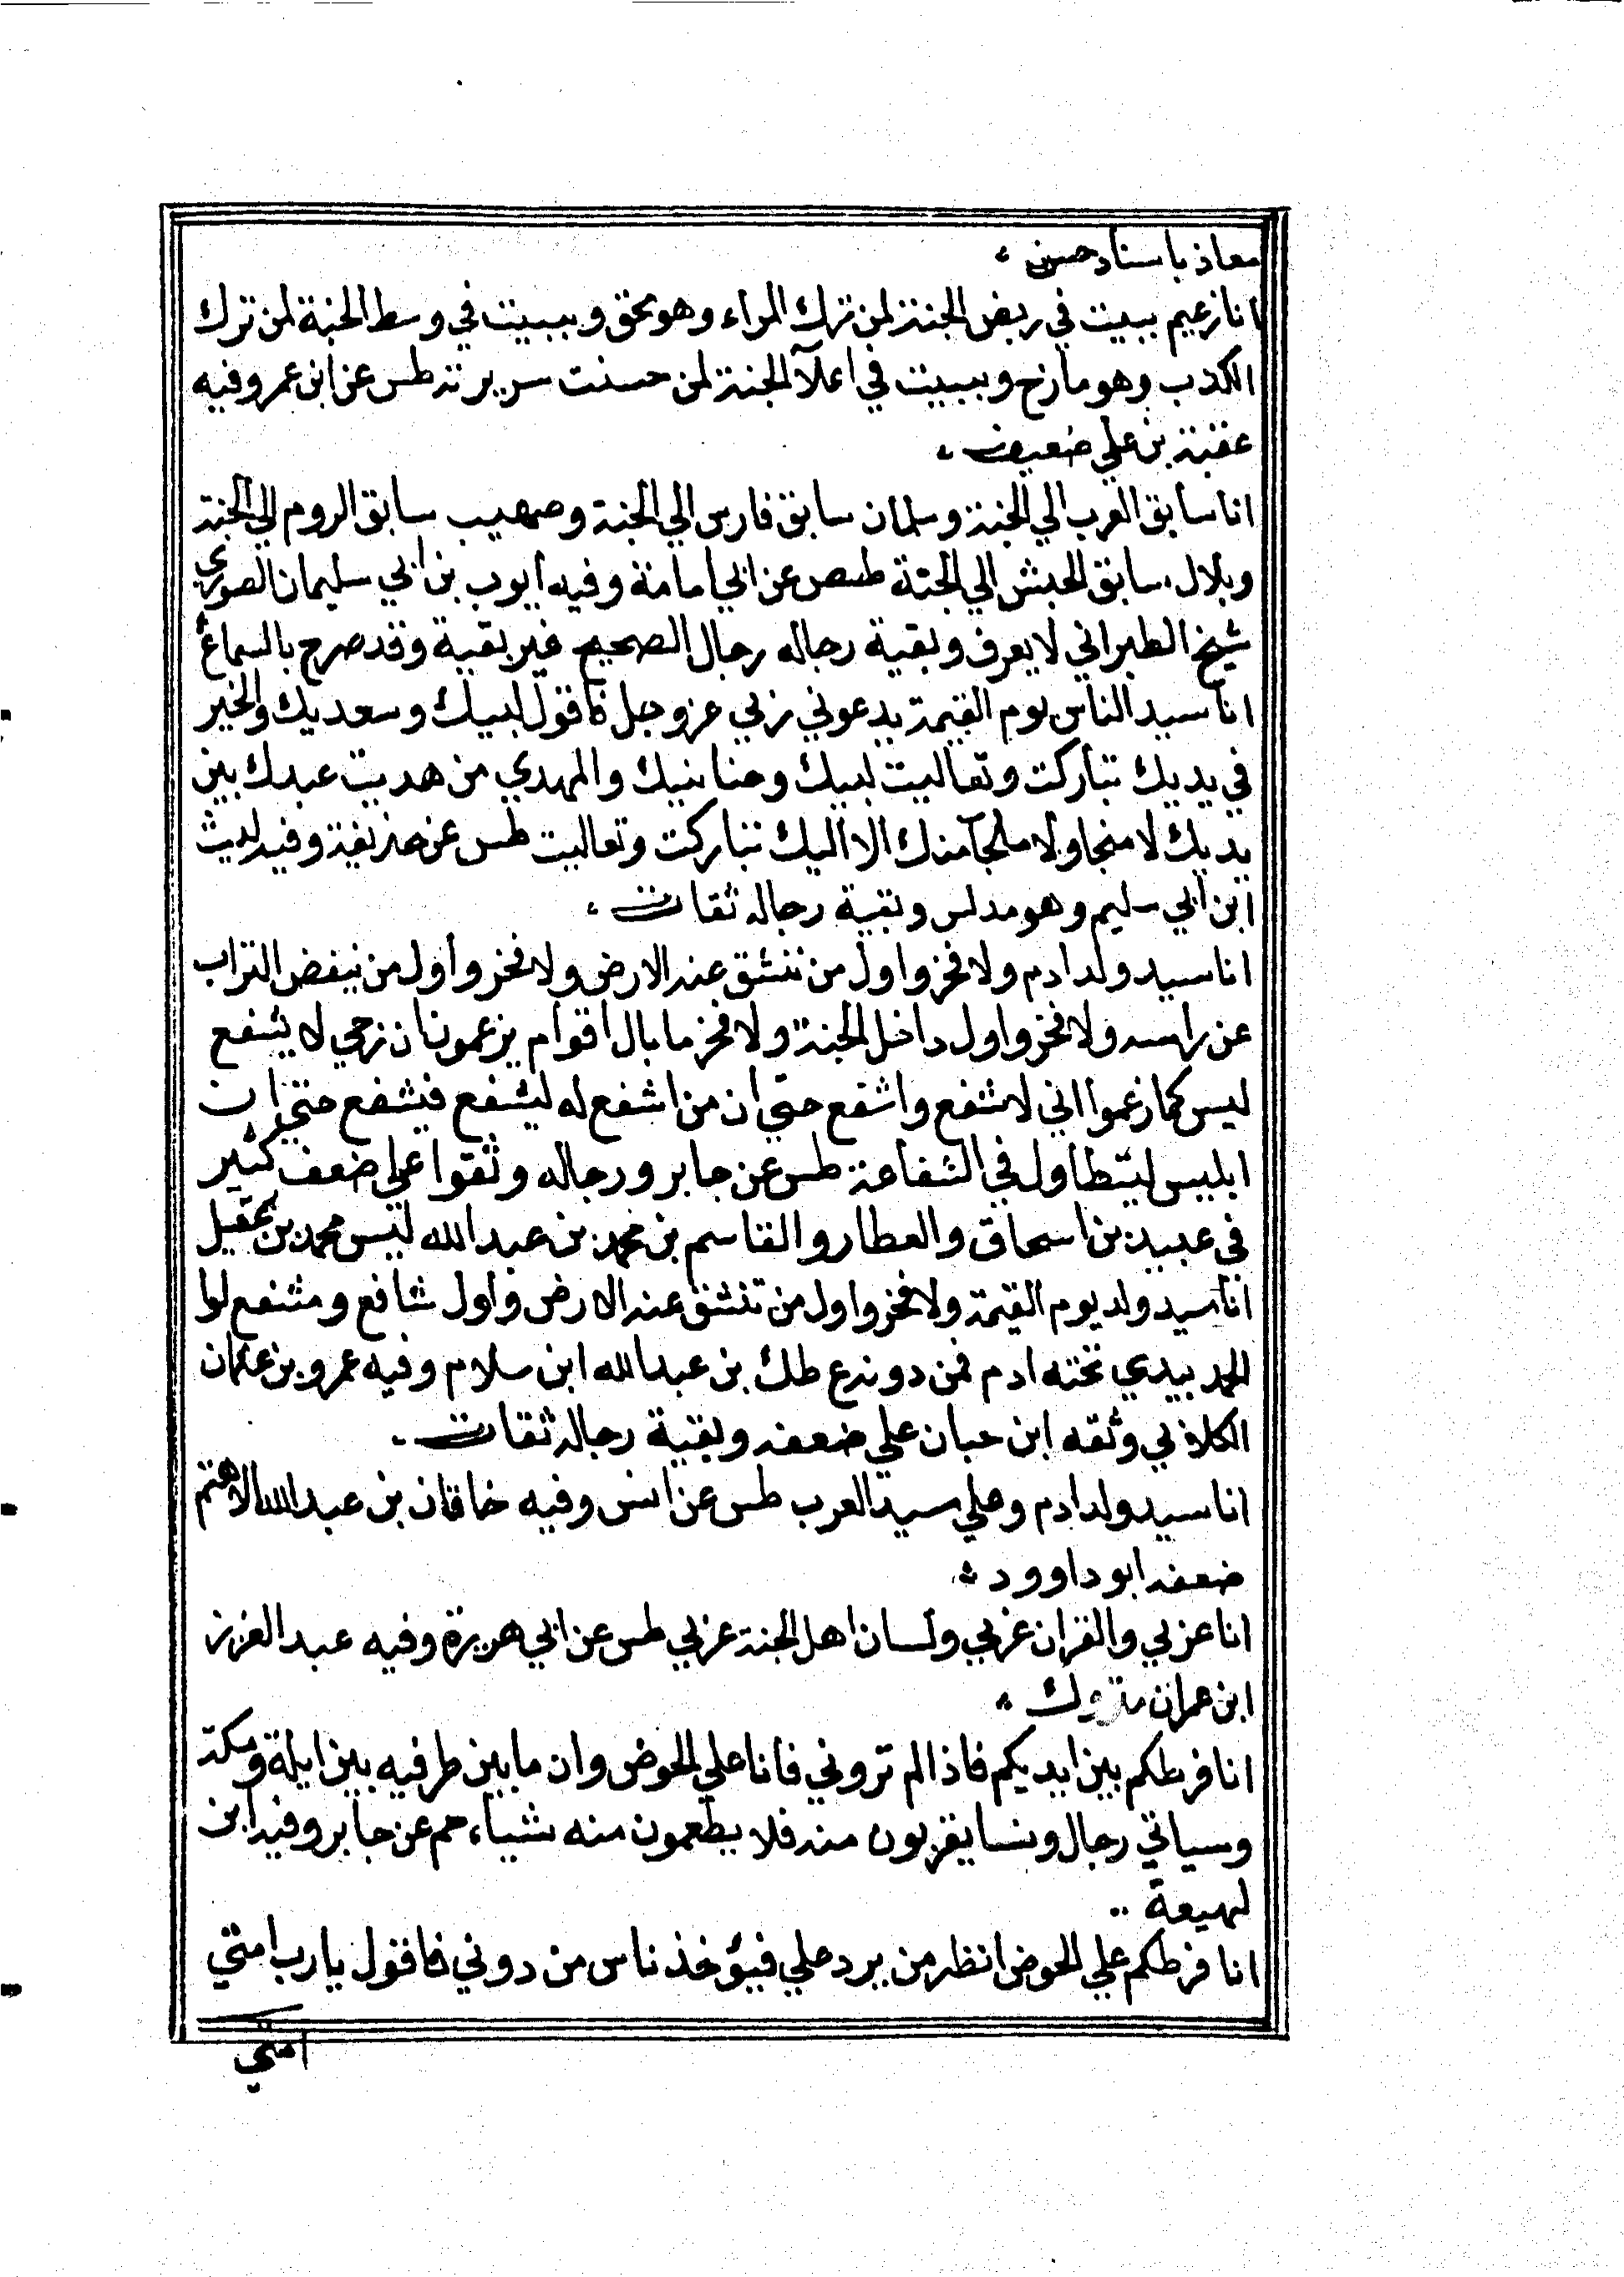 معاذ باسناد حسن ،
انا زعيم ببيت في ربض الجنة لمن ترك المراء وهو محق وببيت في وسط الجنة لمن ترك
الكذب وهو مازح وببيت في اعلآ الجنة لمن حسنت سريرته طس عن ابن عمر وفيه
عقبة بن علي ضعيف ،
انا سابق العرب الي الجنة وسلمان سابق فارس الي الجنة وصهيب سابق الروم الي الجنة
وبلال سابق الحبش الي الجنة طص عن ابي امامة وفيه ايوب بن ابي سليمان الصوري
شيخ الطبراني لا يعرف وبقية رجاله رجال الصحيح غير بقية وقد صرح بالسماع
انا سيد الناس يوم القيمة يدعوني ربي عز وجل فاقول لبيك وسعديك والخير
في يديك تباركت وتعاليت لبيك وحنانيك والمهدي من هديت عبدك بين
يديك لا منجا ولا ملجآ منك الا اليك تباركت وتعاليت طس عن حذيفة وفيه ليث
ابن ابي سليم وهو مدلس وبقية رجاله ثقات ،
انا سيد ولد ادم ولا فخر واول من تنشق عنه الارض ولا فخر واول من ينفض التراب
عن راسه ولا فخر واول داخل الجنة ولا فخر ما بال اقوام يزعمون ان رحمي لا يشفع
ليس كما زعموا اني لا شفع واشفع حتي ان من اشفع له ليشفع فيشفع حتي ان
ابليس ليتطاول في الشفاعة طس عن جابر ورجاله وثقوا علي ضعف كثير
في عبيد بن اسحاق والعطار والقاسم بن محمد بن عبد الله ليس محمد بن عقيل
انا سيد ولد يوم القيمة ولا فخر واول من تنشق عنه الارض واول شافع ومشفع لوا
الحمد بيدي تحته ادم فمن دونه ع طك بن عبد الله ابن سلام وفيه عمرو بن عثمان
الكلابي وثقه ابن حبان علي ضعفه وبقية رجاله ثقات ،
انا سيد ولد ادم وعلي سيد العرب طس عن انس وفيه خاقان بن عبد الله الاهتم
ضعفه ابو داوود ،
انا عربي والقران عربي ولسان اهل الجنة عربي طس عن ابي هريرة وفيه عبد العزيز
ابن عمران متروك ،
انا فرطكم بين ايديكم فاذا لم تروني فانا علي الحوض وان ما بين طرفيه بين ايلة ومكة
وسياتي رجال ونسا يقربون منه فلا يطعمون منه شياء، حم عن جابر وفيه ابن
لهيعة ..
انا فرطكم علي الحوض انظر من يرد علي فيؤخذ ناس من دوني فاقول يا رب امتي
امتي